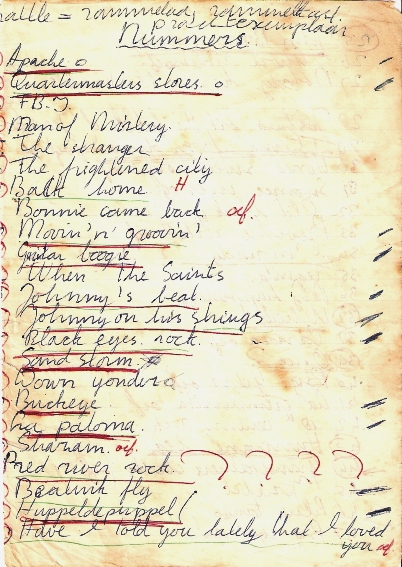 = rammelad, rammelkast.
Nummers.
Apache o
Quartermasters stores. o
F.B.I
Man of Mistery.
The stranger
The frightened city
Back home H
Bonnie came back. oef.
Movin' n' groovin'
Guitar boogie
When The Saints
Johnny's beat.
Johnny on his Shings
Black eyes rock.
Sand storm
Down yonder o
Buckeye.
La paloma.
Sharam. oef.
Red river rock. ? ? ? ?
Beatnik fly
Huppeldepuppel!
Have I told you lately that I loved
you oef